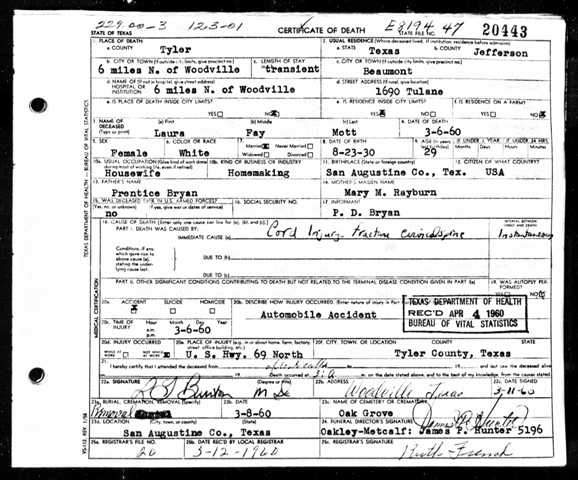 229.00-3 123-01 E8194 47
STATE OF TEXAS CERTIFICATE OF DEATH STATE FILE NO. 20443
1. PLACE OF DEATH 2. USUAL RESIDENCE (Where deceased lived. If institution: residence before admission)
a. COUNTY Tyler a. STATE Texas b. COUNTY Jefferson
b. CITY OR TOWN (If outside city limits, give precinct no.) c. LENGTH OF STAY c. CITY OR TOWN (If outside city limits, give precinct no.)
6 miles N. of Woodville transient Beaumont
d. NAME OF (If not in hospital, give street address) HOSPITAL OR INSTITUTION 6 miles N. of Woodville d. STREET ADDRESS (If rural, give location) 1690 Tulane
e. IS PLACE OF DEATH INSIDE CITY LIMITS? YES NO e. IS RESIDENCE INSIDE CITY LIMITS? YES NO f. IS RESIDENCE ON A FARM? YES NO
3. NAME OF DECEASED (Type or print) (a) First (b) Middle (c) Last 4. DATE OF DEATH
Laura Fay Mott 3-6-60
5. SEX 6. COLOR OR RACE 7. Married Never Married Widowed Divorced 8. DATE OF BIRTH 9. AGE IF UNDER 1 YEAR IF UNDER 24 HRS.
Female White 8-23-30 29 Months Days Hours Minutes
10a. USUAL OCCUPATION (Give kind of work done during most of working life, even if retired) 10b. KIND OF BUSINESS OR INDUSTRY 11. BIRTHPLACE (State or foreign country) 12. CITIZEN OF WHAT COUNTRY?
Housewife Homemaking San Augustine Co., Tex. USA
13. FATHER'S NAME 14. MOTHER'S MAIDEN NAME
Prentice Bryan Mary M. Rayburn
15. WAS DECEASED EVER IN U.S. ARMED FORCES? (Yes, no, or unknown) (If yes, give war or dates of service) 16. SOCIAL SECURITY NO. 17. INFORMANT
no P. D. Bryan
18. CAUSE OF DEATH [Enter only one cause per line for (a), (b), and (c).] INTERVAL BETWEEN ONSET AND DEATH
PART I. DEATH WAS CAUSED BY:
IMMEDIATE CAUSE (a) Cord Injury fracture cervical spine Instantaneous
Conditions, if any, which gave rise to above cause (a), stating the underlying cause last.
DUE TO (b)
DUE TO (c)
PART II. OTHER SIGNIFICANT CONDITIONS CONTRIBUTING TO DEATH BUT NOT RELATED TO THE TERMINAL DISEASE CONDITION GIVEN IN PART I(a) 19. WAS AUTOPSY PERFORMED? YES NO
20a. ACCIDENT SUICIDE HOMICIDE 20b. DESCRIBE HOW INJURY OCCURRED. (Enter nature of injury in Part I
Automobile Accident
TEXAS DEPARTMENT OF HEALTH
REC'D APR 4 1960
BUREAU OF VITAL STATISTICS
20c. TIME OF INJURY Hour Month Day Year a.m. p.m. 3-6-60
20d. INJURY OCCURRED WHILE AT WORK NOT WHILE AT WORK 20e. PLACE OF INJURY (e.g., in or about home, farm, factory, street, office building, etc.) 20f. CITY, TOWN, OR LOCATION COUNTY STATE
U. S. Hwy. 69 North Tyler County, Texas
21. I hereby certify that I attended the deceased from to and last saw the deceased alive
on Death occurred at m. on the date stated above, and to the best of my knowledge, from the causes stated.
22a. SIGNATURE (Degree or title) 22b. ADDRESS 22c. DATE SIGNED
Woodville Texas 3-11-60
23a. BURIAL, CREMATION, REMOVAL (Specify) 23b. DATE 23c. NAME OF CEMETERY OR CREMATORY
Removal 3-8-60 Oak Grove
23d. LOCATION (City, town, or county) (State) 24. FUNERAL DIRECTOR'S SIGNATURE
San Augustine Co., Texas Oakley-Metcalf: James P. Hunter 5196
25a. REGISTRAR'S FILE NO. 25b. DATE REC'D BY LOCAL REGISTRAR 25c. REGISTRAR'S SIGNATURE
20 3-12-1960 Ruth French
TEXAS DEPARTMENT OF HEALTH — BUREAU OF VITAL STATISTICS
MEDICAL CERTIFICATION